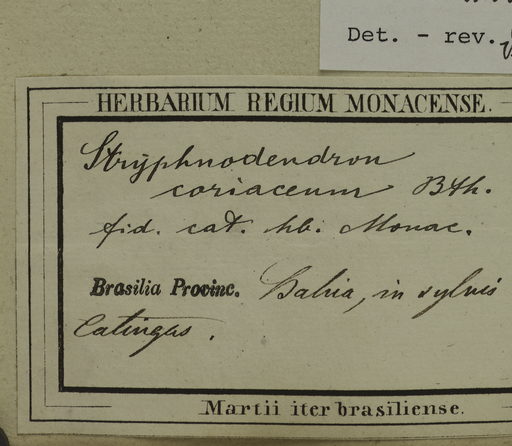 Det. - rev.
HERBARIUM REGIUM MONACENSE.
Stryphnodendron
coriaceum Bth.
fid. cat. hb. Monac.
Brasilia Provinc. Bahia, in sylvis
Catingas.
Martii iter brasiliense.